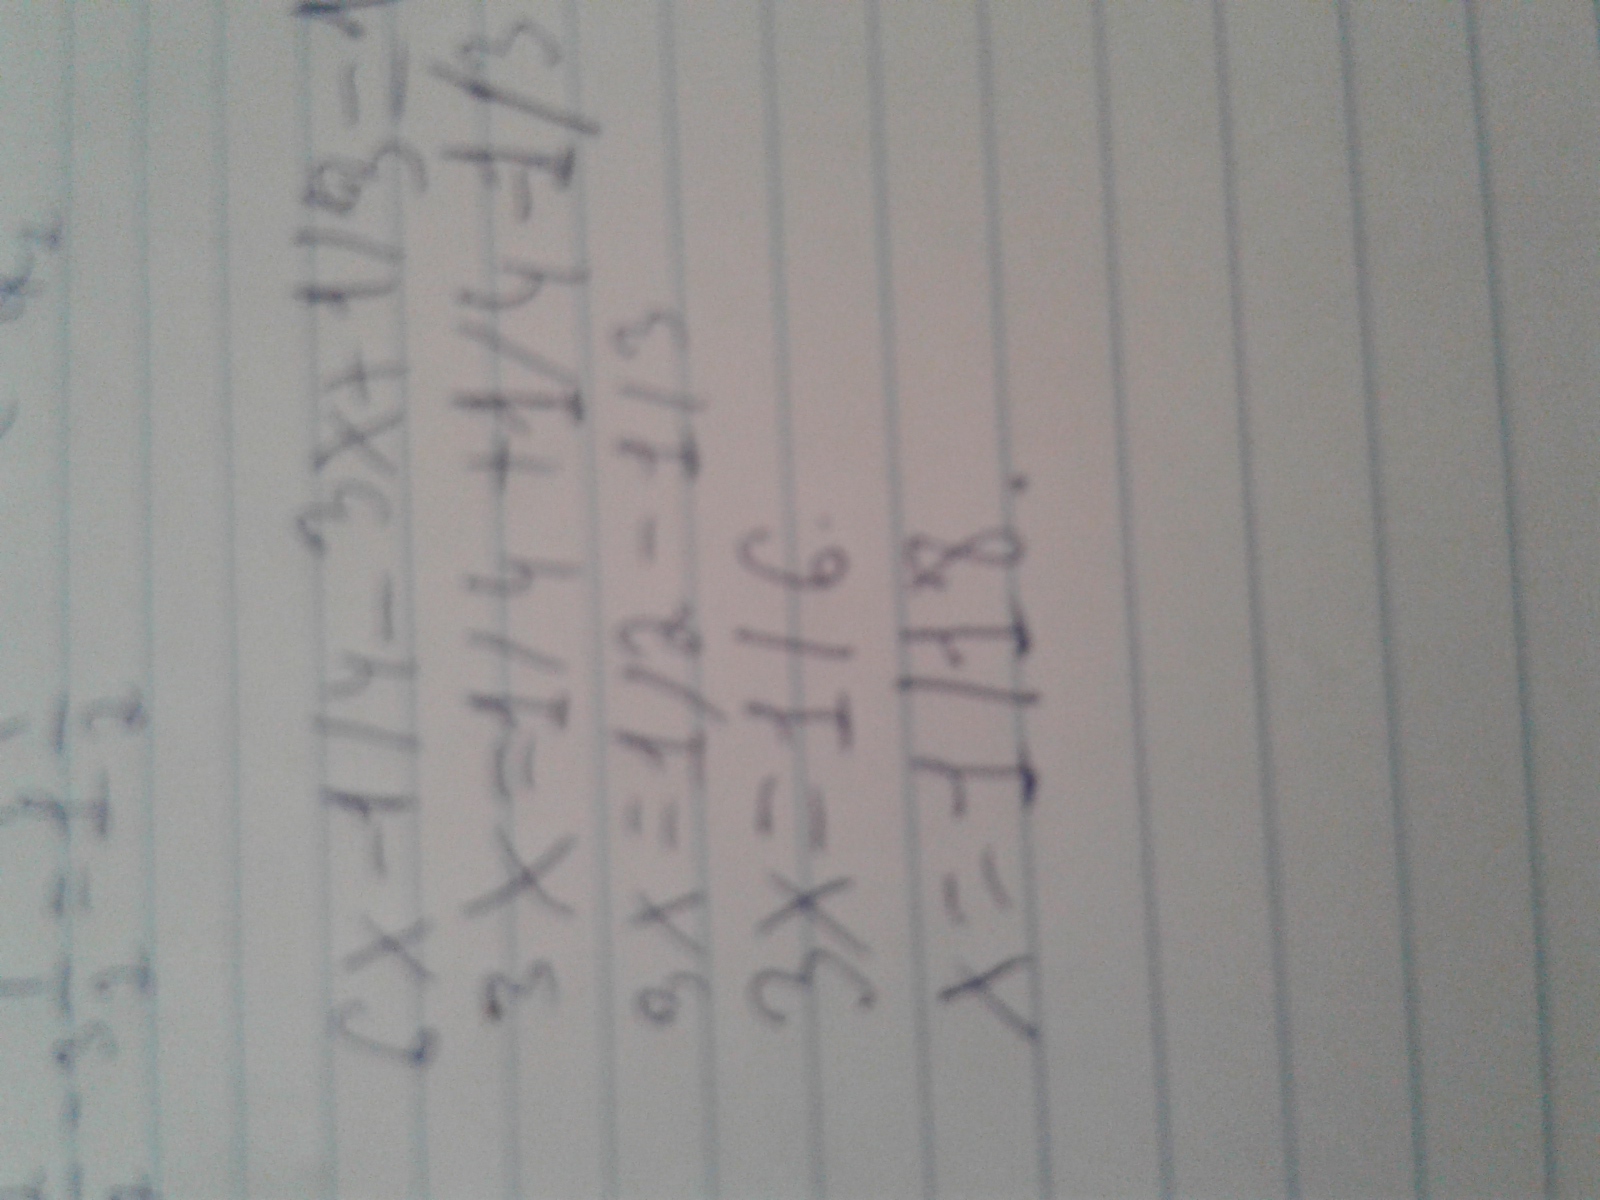 6x - 1/4 - 3x + 1/3 -
3x = 1/4 + 1/4 - 1/3
3x = 1/2 - 1/3
3x = 1/6
x = 1/18.